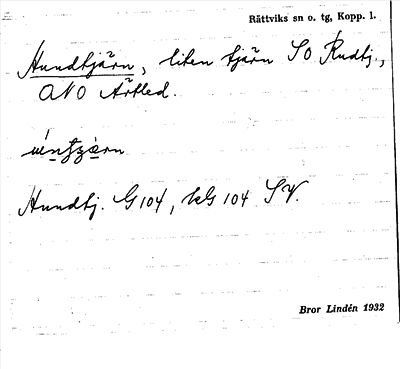 Rättviks sn o. tg, Kopp. l.
Hundtjärn, liten tjärn SO Rudtj.,
ONO Ärtled.
Hundtj. G 104, kG 104 SV.
Bror Lindén 1932